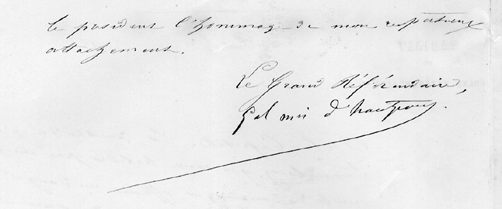 le président l'hommage de mon respectueux
attachement.
Le Grand Référendaire,
Gal mis d'hautpoul.